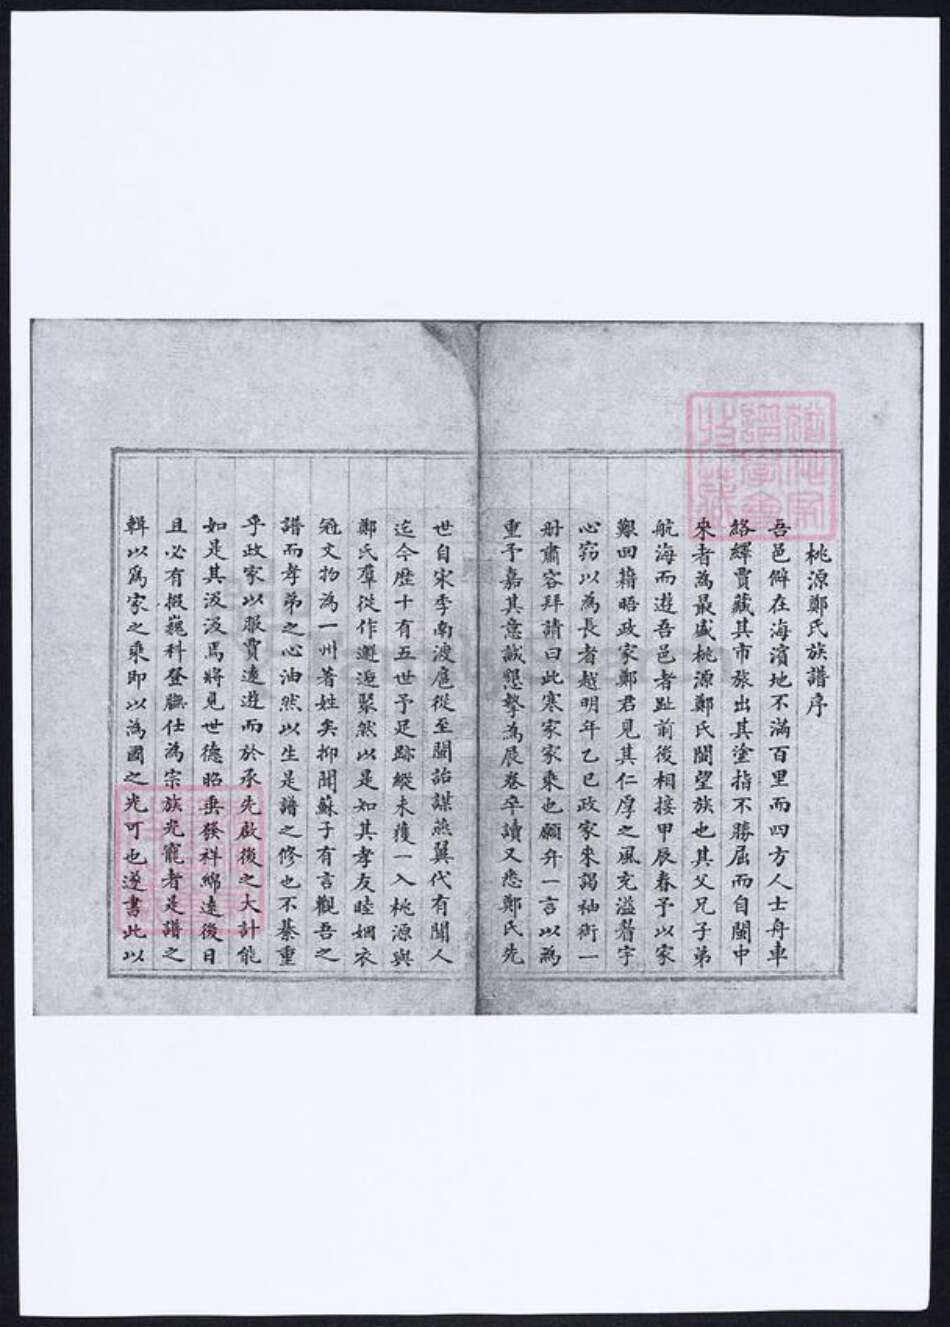 桃源鄭氏族譜序
吾邑僻在海濱地不滿百里而四方人士舟車
絡繹賈藏其市旅出其塗指不勝屈而自閩中
來者為最盛桃源鄭氏閩望族也其父兄子弟
航海而遊吾邑者趾前後相接甲辰春予以家
艱回籍晤政家鄭君見其仁厚之風充溢眉宇
心竊以為長者越明年乙巳政家來謁袖術一
冊肅容拜請曰此寒家家乘也願弁一言以為
重予嘉其意誠懇摯為展卷卒讀又悉鄭氏先
世自宋季南渡扈從至閩詒謀燕翼代有聞人
迄今歷十有五世予足跡縱未獲一入桃源與
鄭氏羣從作邂逅聚然以是知其孝友睦婣衣
冠文物為一州著姓矣抑聞蘇子有言觀吾之
譜而孝弟之心油然以生是譜之修也不綦重
乎政家以服賈遠遊而於承先啟後之大計能
如是其汲汲焉將見世德昭垂發祥綿遠後日
且必有掇巍科登膴仕為宗族光寵者是譜之
輯以為家之乘即以為國之光可也遂書此以